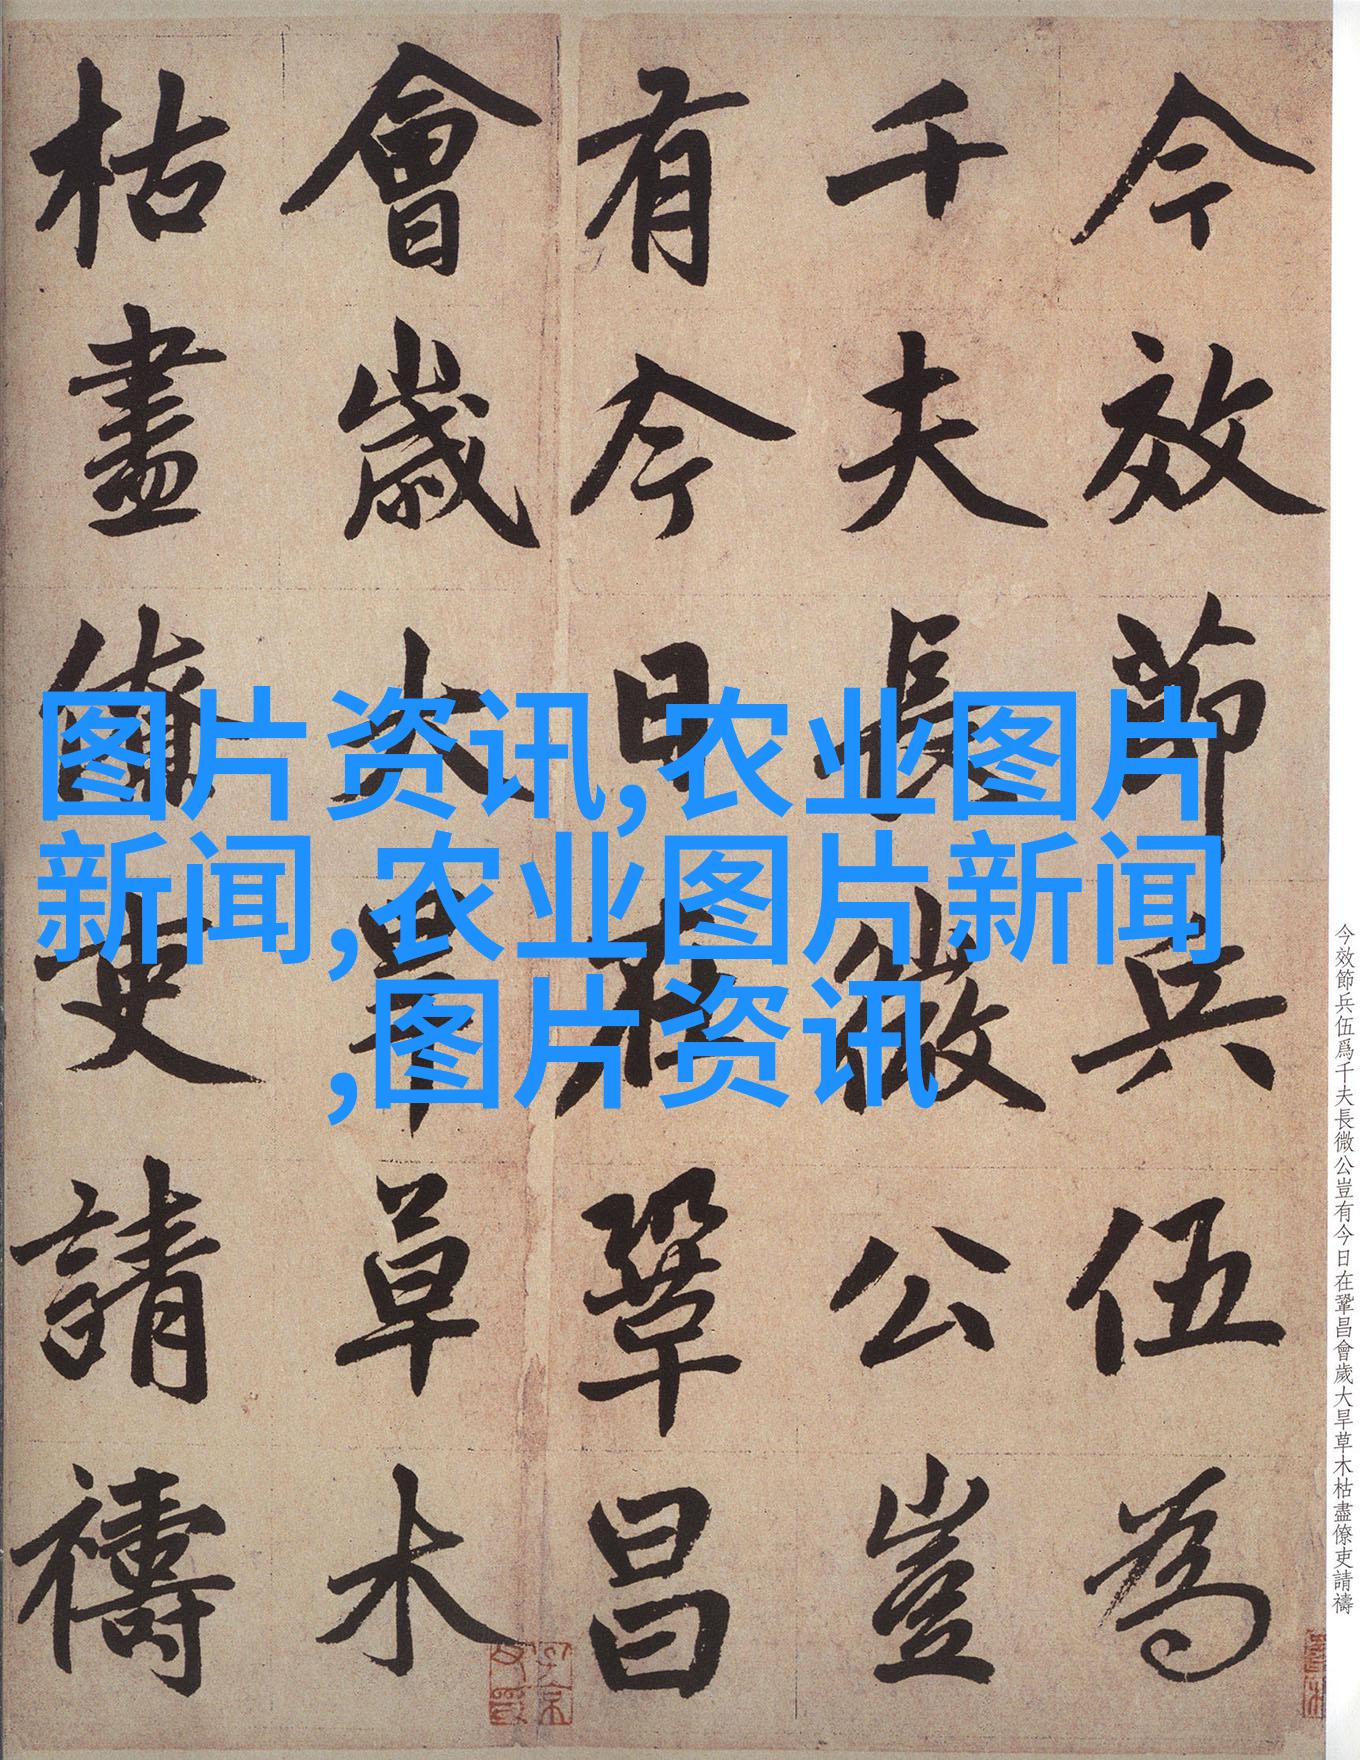 今效節兵伍為
千夫長微公豈
有今日在鞏昌
會歲大旱草木
枯盡僚吏請禱
图片资讯,农业图片
新闻,农业图片新闻
,图片资讯
今效節兵伍爲千夫長微公豈有今日在鞏昌會歲大旱草木枯盡僚吏請禱